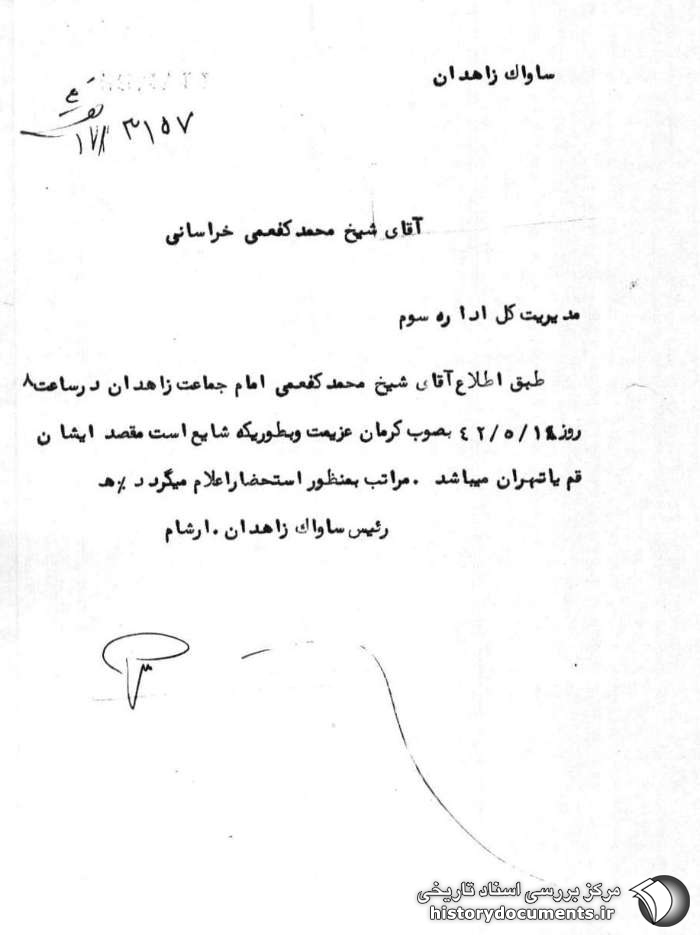 ساواك زاهدان
۳۱۵۷
۱۷/
آقای شیخ محمد کفعمی خراسانی
مدیریت کل اداره سوم
طبق اطلاع آقای شیخ محمد کفعمی امام جماعت زاهدان در ساعت ۸
روز ۴۲/۵/۱۸ بصوب کرمان عزیمت و بطوریکه شایع است مقصد ایشان
قم یا تهران میباشد . مراتب بمنظور استحضار اعلام میگردد ٪ هـ
رئیس ساواك زاهدان . ارشام
مرکز بررسی اسناد تاریخی
historydocuments.ir